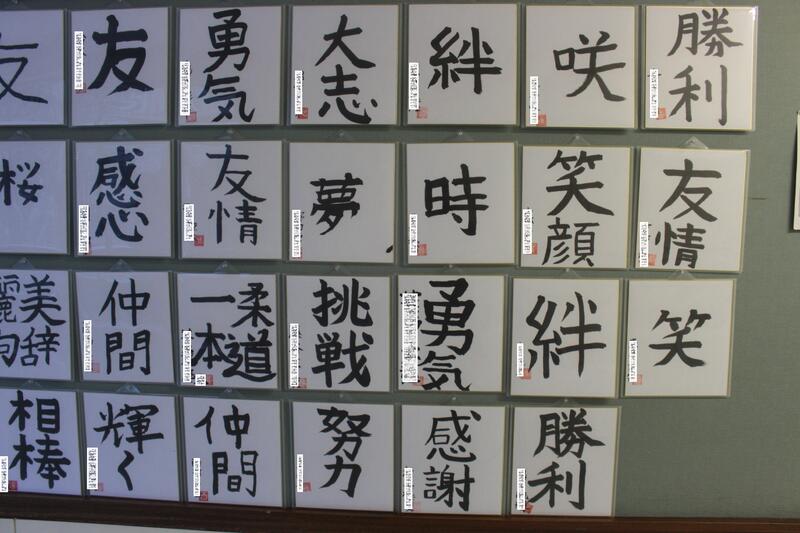 友
友
勇気
大志
絆
咲
勝利
桜
感心
友情
夢
時
笑顔
友情
美辞
麗句
仲間
柔道
一本
挑戦
勇気
絆
笑
相棒
輝く
仲間
努力
感謝
勝利